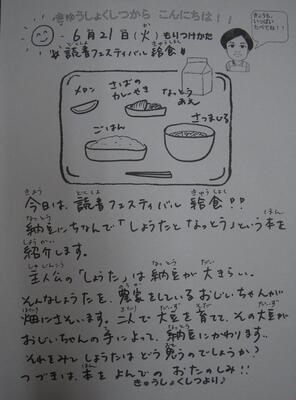 きゅうしょくしつから こんにちは！！
きょうも、
いっぱい
たべてね！！
6月21日(火) もりつけかた
読書フェスティバル 給食
メロン
さばの
カレーやき
なっとう
あえ
ごはん
さつまじる
今日は、読書フェスティバル 給食！！
納豆にちなんで「しょうたとなっとう」という本を
紹介します。
主人公の「しょうた」は納豆が大きらい。
そんなしょうたを、農家をしているおじいちゃんが
畑にさそいます。二人で大豆を育てて、その大豆が
おじいちゃんの手によって、納豆にかわります。
それをみてしょうたはどう思うのでしょうか？
つづきは、本をよんでのおたのしみ！！
きゅうしょくしつより♪